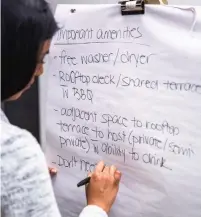 Important amenities
- free washer/dryer
- Rooftop deck/shared terrace
w BBQ
- adjacent space to rooftop
terrace to host (private/semi
private) w ability to drink
- Don't